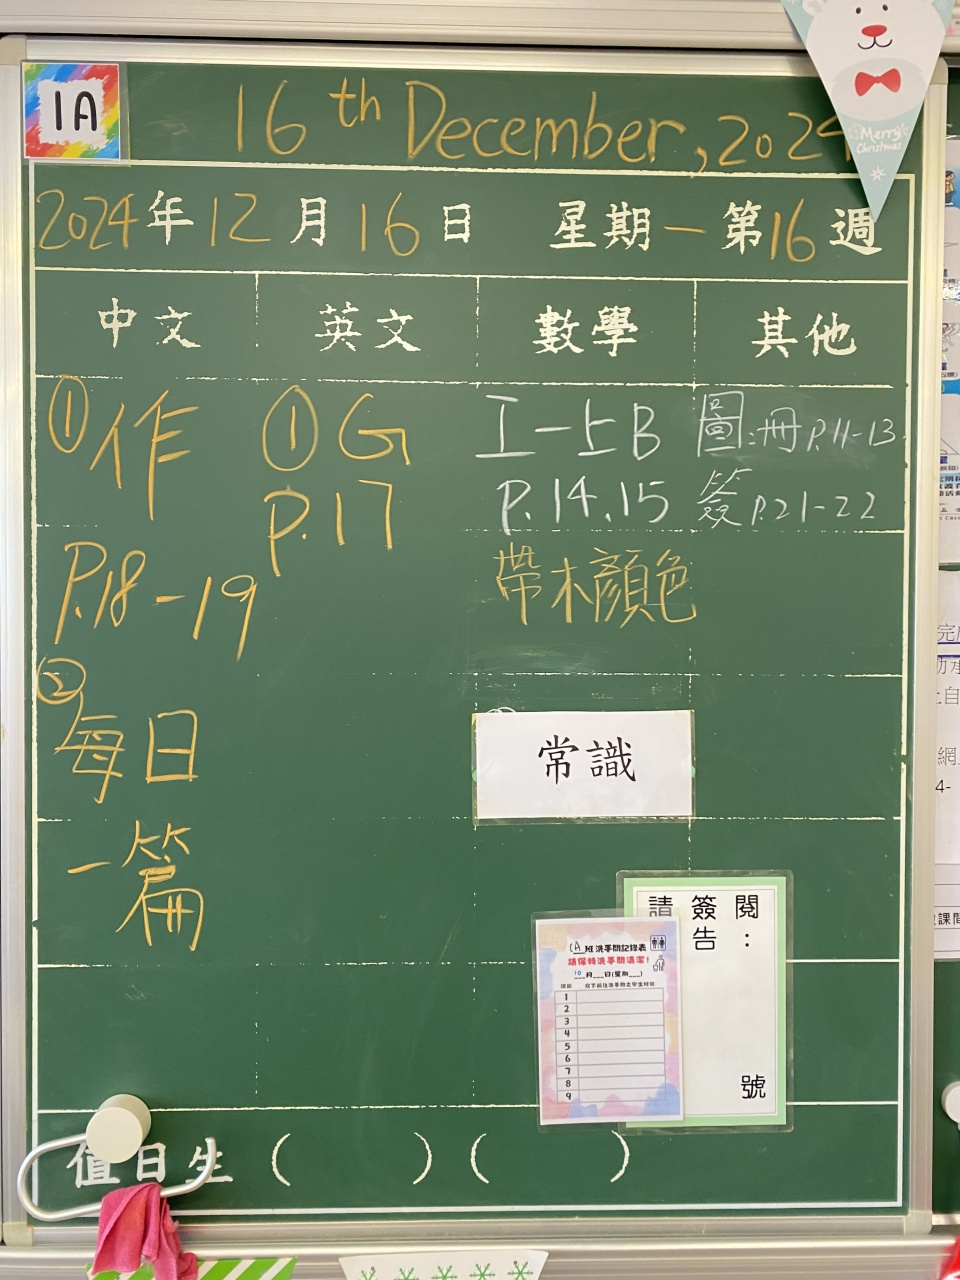 1A
16th December, 2024
Merry Christmas
2024年12月16日 星期一 第16週
中文 英文 數學 其他
① 作
P.18-19
② 每日
一篇
① G
P.17
工一上B
P.14,15
帶木顏色
圖:冊 P.11-13
簽 P.21-22
常識
請簽閱:
告
號
1A 班洗手間記錄表
請保持洗手間清潔!
10月___日(星期___)
1
2
3
4
5
6
7
8
9
值日生 ( ) ( )